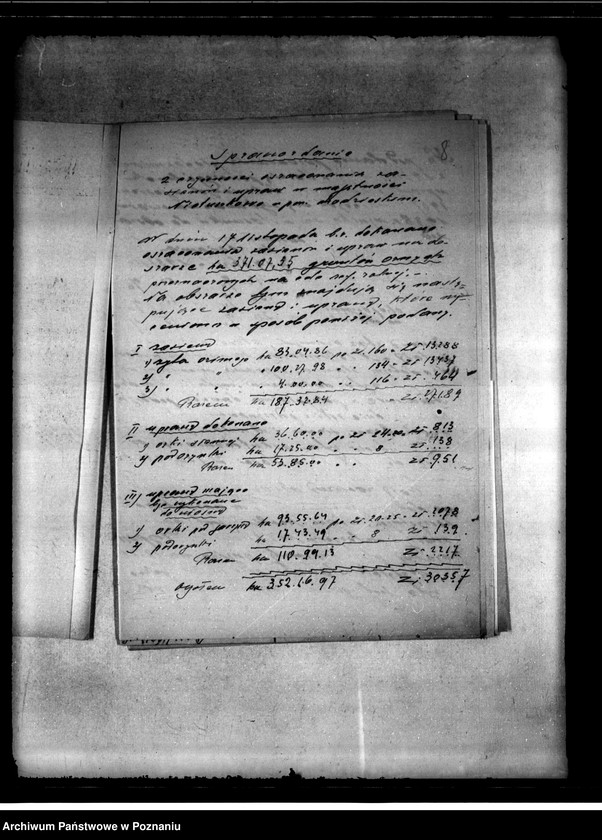 8
Sprawozdanie
z czynności oszacowania za-
siewów i upraw w majętności
W dniu 17 listopada b.r. dokonano
oszacowania zasiewów i upraw na ob-
szarze ha 371.07,95 gruntów ornych
na cele
Na obszarze tym znajdują się nastę-
pujące zasiewy i uprawy, które wy-
ceniono w sposób poniżej podany.
I zasiewy
1) żyta ozimego ha 83.04.86 po zł. 160.- zł 13288
2) " " " 100.27.98 " " 134.- zł 13437
3) " " " 4.00.00 " " 116.- zł 464
Razem ha 187.32.84 zł 27189
II uprawy dokonane
1) orki ha 36.60.00 po zł 24.00 zł 813
2) podorywki ha 17.25.00 " " 8 zł 138
Razem ha 53.85.00 " " zł 951
III) uprawy mające
być wykonane
do wiosny
1) orki pod ha 93.55.64 po zł. zł 2078
2) podorywki ha 17.43.49 " " 8 zł 139.
Razem ha 110.99.13 zł 2217
Ogółem ha 352.16.97 zł 30357
Archiwum Państwowe w Poznaniu